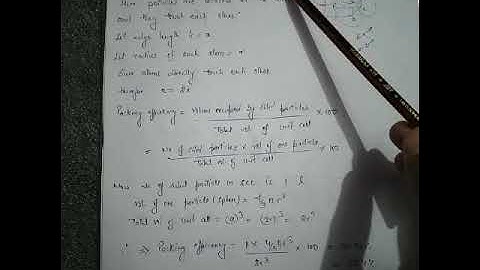 and they touch each other
Let edge length = a
Let radius of each atom = r
Since atoms directly touch each other
Therefore a = 2r
Packing efficiency = Volume occupied by solid particles × 100
Total vol of unit cell
= No of solid particles × vol of one particle × 100
Total vol of unit cell
Now no of solid particle in scc is 1 &
vol of one particle (sphere) = 4/3 π r³
Total vol of unit cell = (a)³ = (2r)³ = 8r³
⇒ Packing efficiency = 1 × 4/3 π r³ × 100
8r³